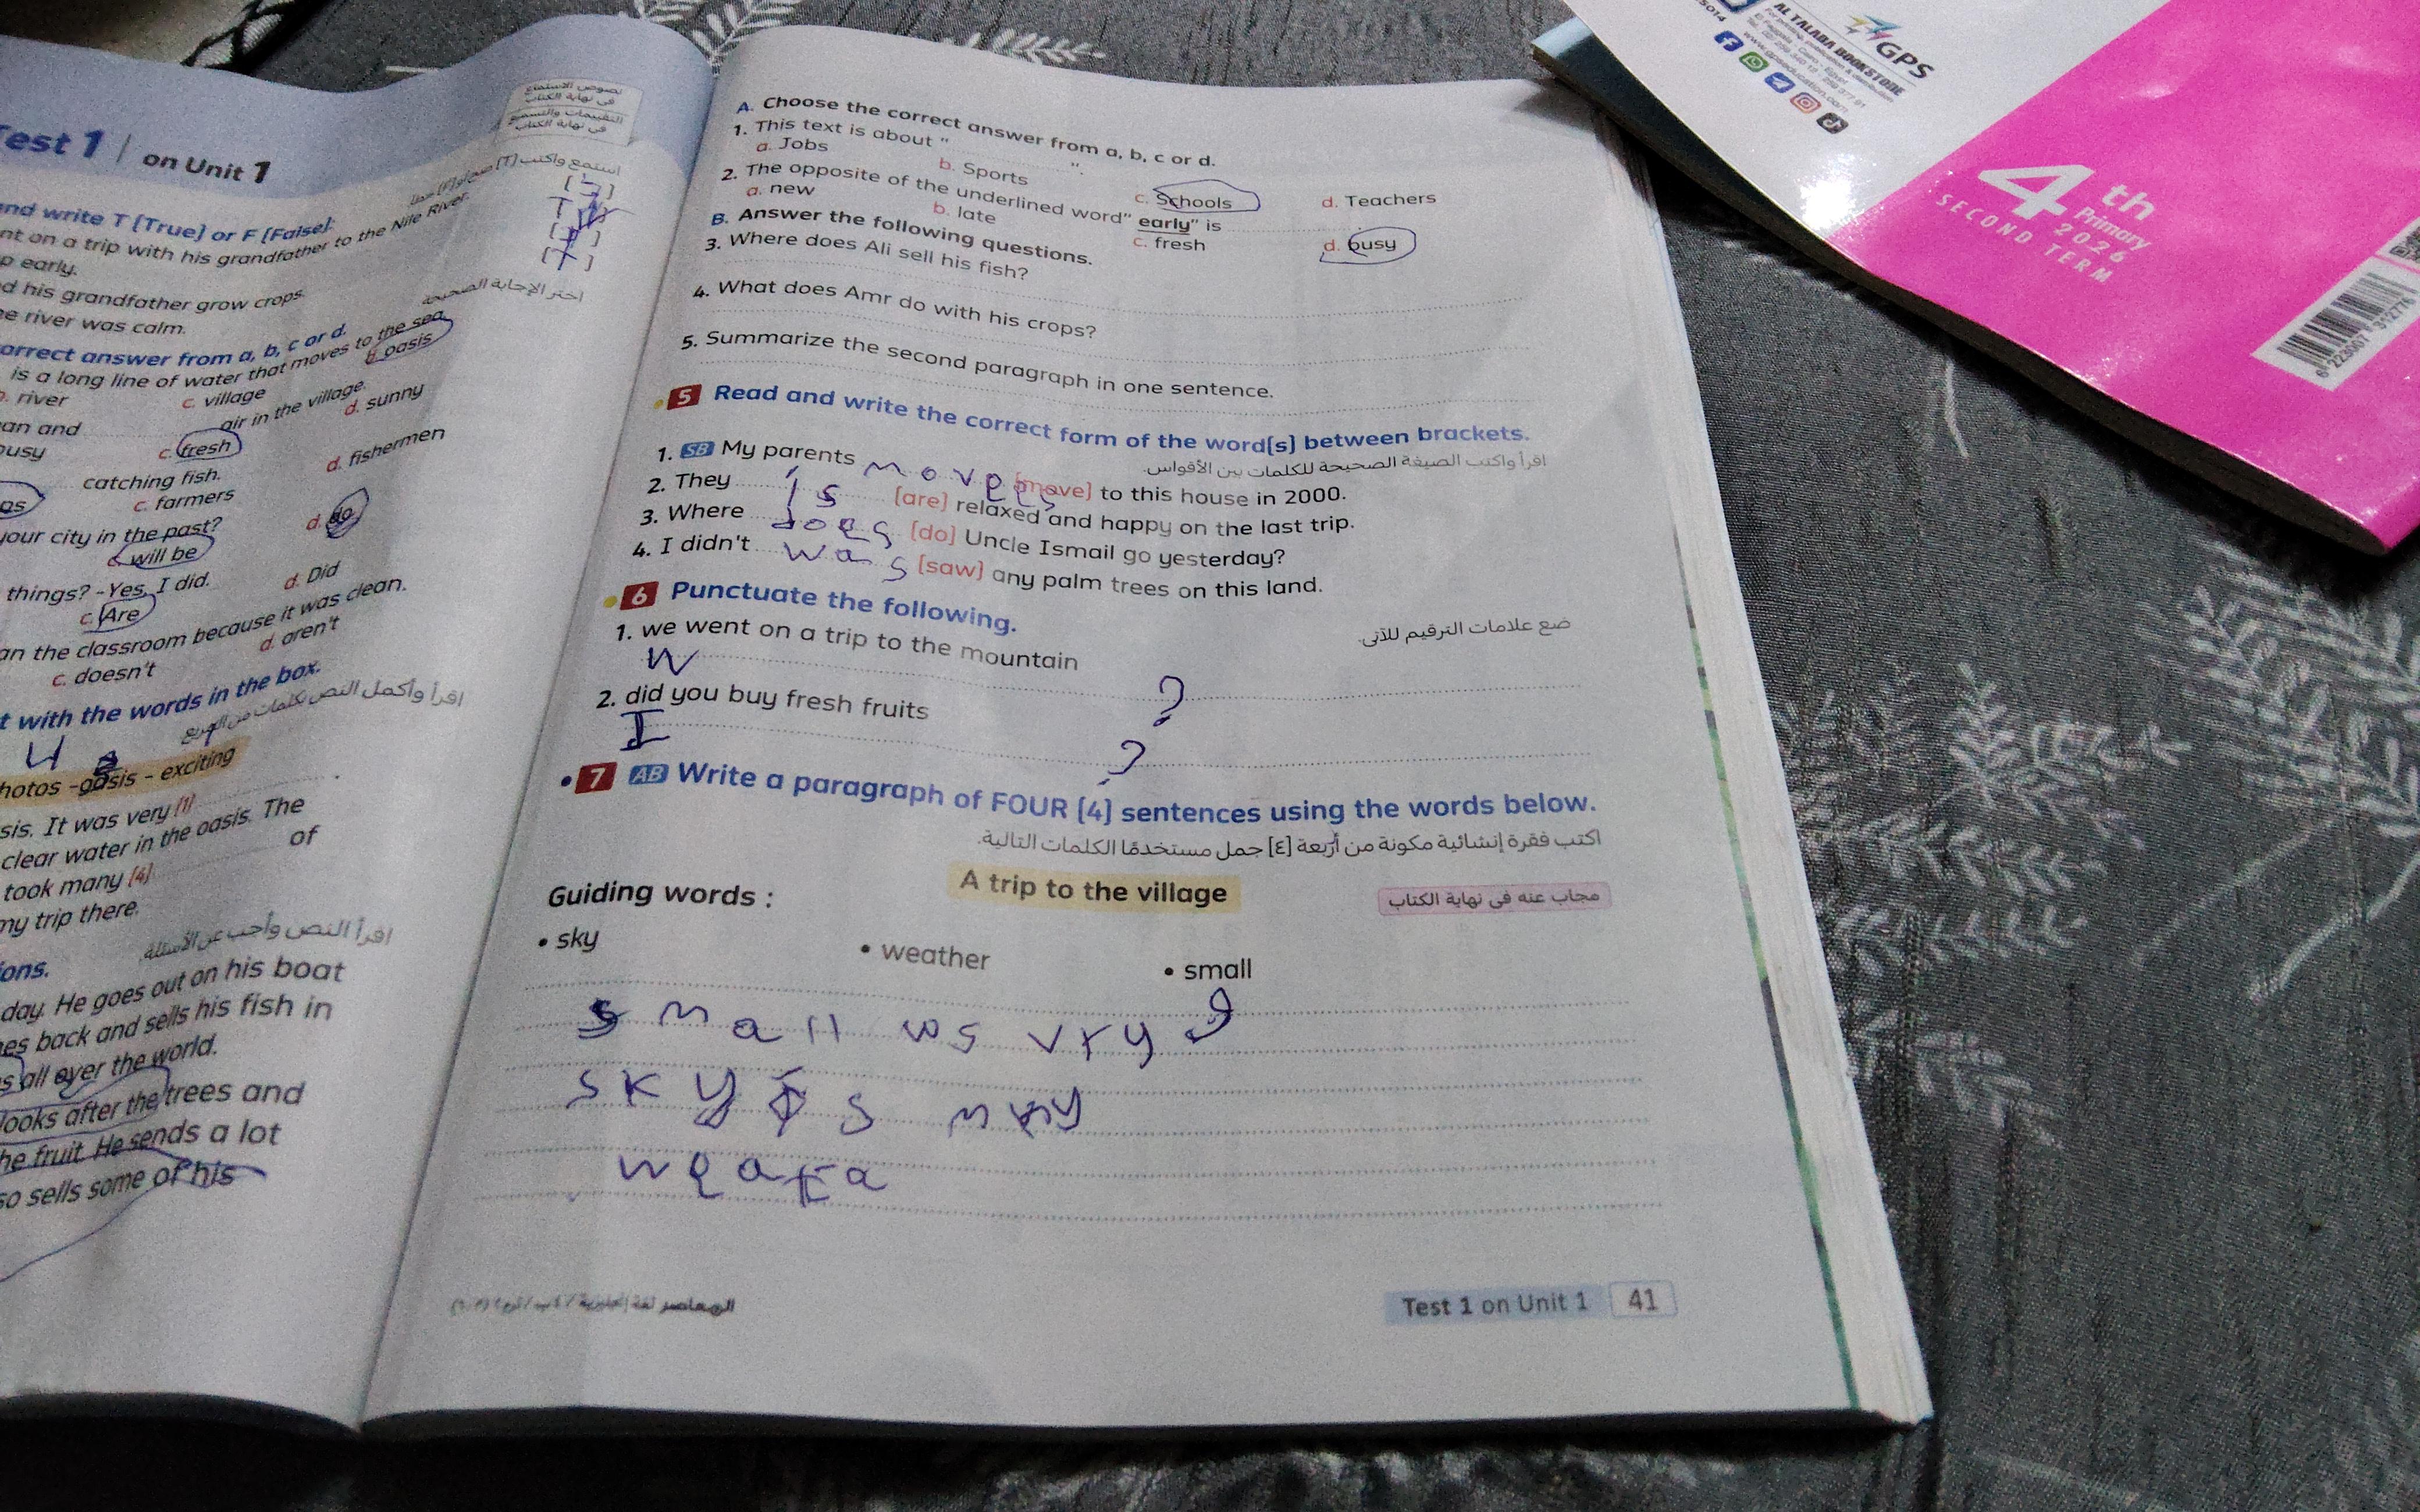 Test 1 | on Unit 1
نصوص الاستماع
فى نهاية الكتاب
التقييمات والتسميع
فى نهاية الكتاب
and write T [True] or F [False].
nt on a trip with his grandfather to the Nile River.
p early.
d his grandfather grow crops.
he river was calm.
اختر الإجابة الصحيحة
orrect answer from a, b, c or d.
is a long line of water that moves to the sea.
river
c. village
oasis
an and air in the village.
busy
c. fresh
d. sunny
catching fish.
c. farmers
d. fishermen
your city in the past?
will be
d. do
things? -Yes, I did.
c. Are
d. Did
an the classroom because it was clean.
c. doesn't
d. aren't
t with the words in the box.
hotos - oasis - exciting
sis. It was very [1]
clear water in the oasis. The
took many [4] of
my trip there.
اقرأ النص وأجب عن الأسئلة
ions.
day. He goes out on his boat
es back and sells his fish in
s all over the world.
looks after the trees and
he fruit. He sends a lot
so sells some of his
A. Choose the correct answer from a, b, c or d.
1. This text is about " ".
a. Jobs
b. Sports
c. Schools
d. Teachers
2. The opposite of the underlined word" early" is
a. new
b. late
c. fresh
d. busy
B. Answer the following questions.
3. Where does Ali sell his fish?
4. What does Amr do with his crops?
5. Summarize the second paragraph in one sentence.
5 Read and write the correct form of the word[s] between brackets.
اقرأ واكتب الصيغة الصحيحة للكلمات بين الأقواس.
1. SB My parents [move] to this house in 2000.
2. They is [are] relaxed and happy on the last trip.
3. Where does [do] Uncle Ismail go yesterday?
4. I didn't was [saw] any palm trees on this land.
6 Punctuate the following.
ضع علامات الترقيم للآتى.
1. we went on a trip to the mountain
W ?
2. did you buy fresh fruits
I ?
7 AB Write a paragraph of FOUR [4] sentences using the words below.
اكتب فقرة إنشائية مكونة من أربعة [٤] جمل مستخدمًا الكلمات التالية.
A trip to the village
مجاب عنه فى نهاية الكتاب
Guiding words :
• sky
• weather
• small
small ws vry
sky is
Test 1 on Unit 1 41
GPS
AL TALABA BOOKSTORE
4th
Primary
2026
SECOND TERM